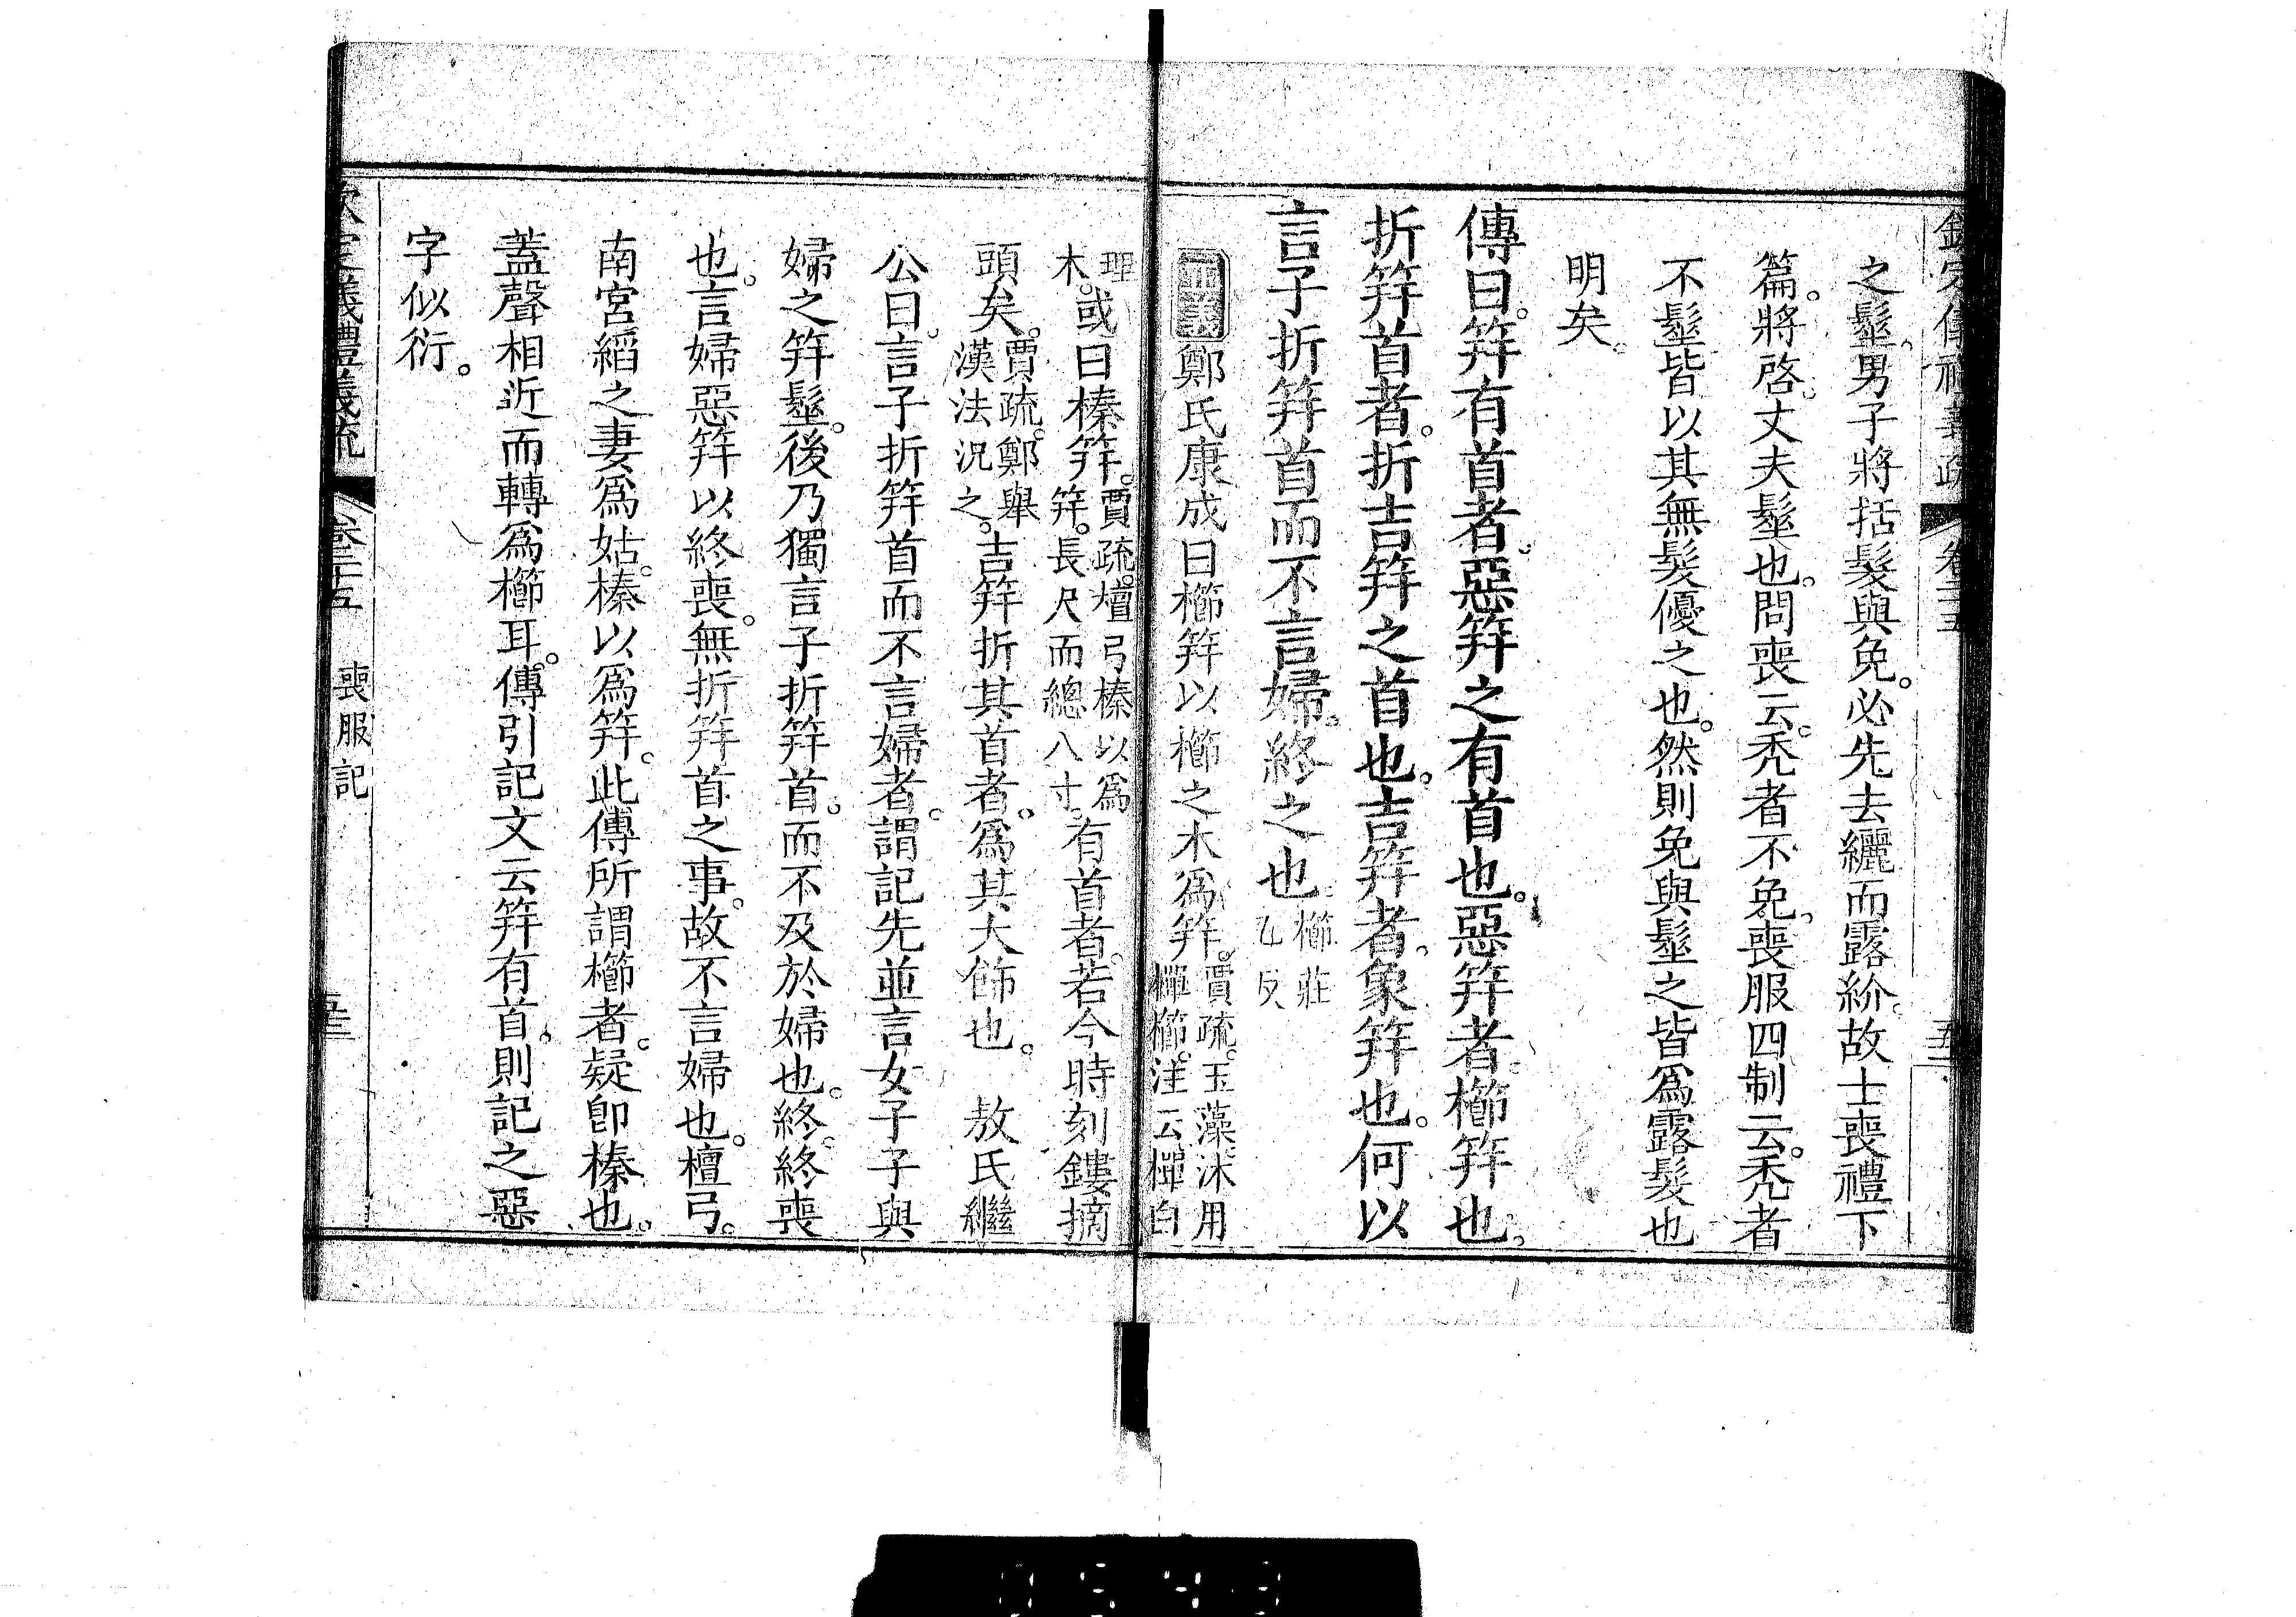 欽定儀禮義疏 卷二十五 五二
之髽。男子將括髮與免。必先去纚而露紒。故士喪禮下
篇。將啓。丈夫髽也。問喪云。禿者不免。喪服四制云。禿者
不髽皆以其無髮優之也。然則免與髽之皆爲露髮也
明矣。
傳曰。笄有首者。惡笄之有首也。惡笄者。櫛笄也。
折笄首者。折吉笄之首也。吉笄者。象笄也。何以
言子折笄首而不言婦。終之也。櫛莊乙反
正義 鄭氏康成曰櫛笄以櫛之木爲笄。賈疏。玉藻沐用樿櫛。注云樿白
理木。或曰榛笄。賈疏。檀弓榛以爲笄。長尺而總八寸。有首者。若今時刻鏤摘
頭矣。賈疏。鄭舉漢法況之。吉笄折其首者。爲其大飾也。 敖氏繼
公曰。言子折笄首而不言婦者。謂記先並言女子子與
婦之笄髽。後乃獨言子折笄首。而不及於婦也。終。終喪
也。言婦惡笄以終喪。無折笄首之事。故不言婦也。檀弓。
南宮縚之妻爲姑。榛以爲笄。此傳所謂櫛者。疑卽榛也。
蓋聲相近而轉爲櫛耳。傳引記文云笄有首。則記之惡
字似衍。
欽定儀禮義疏 卷二十五 喪服記 五三